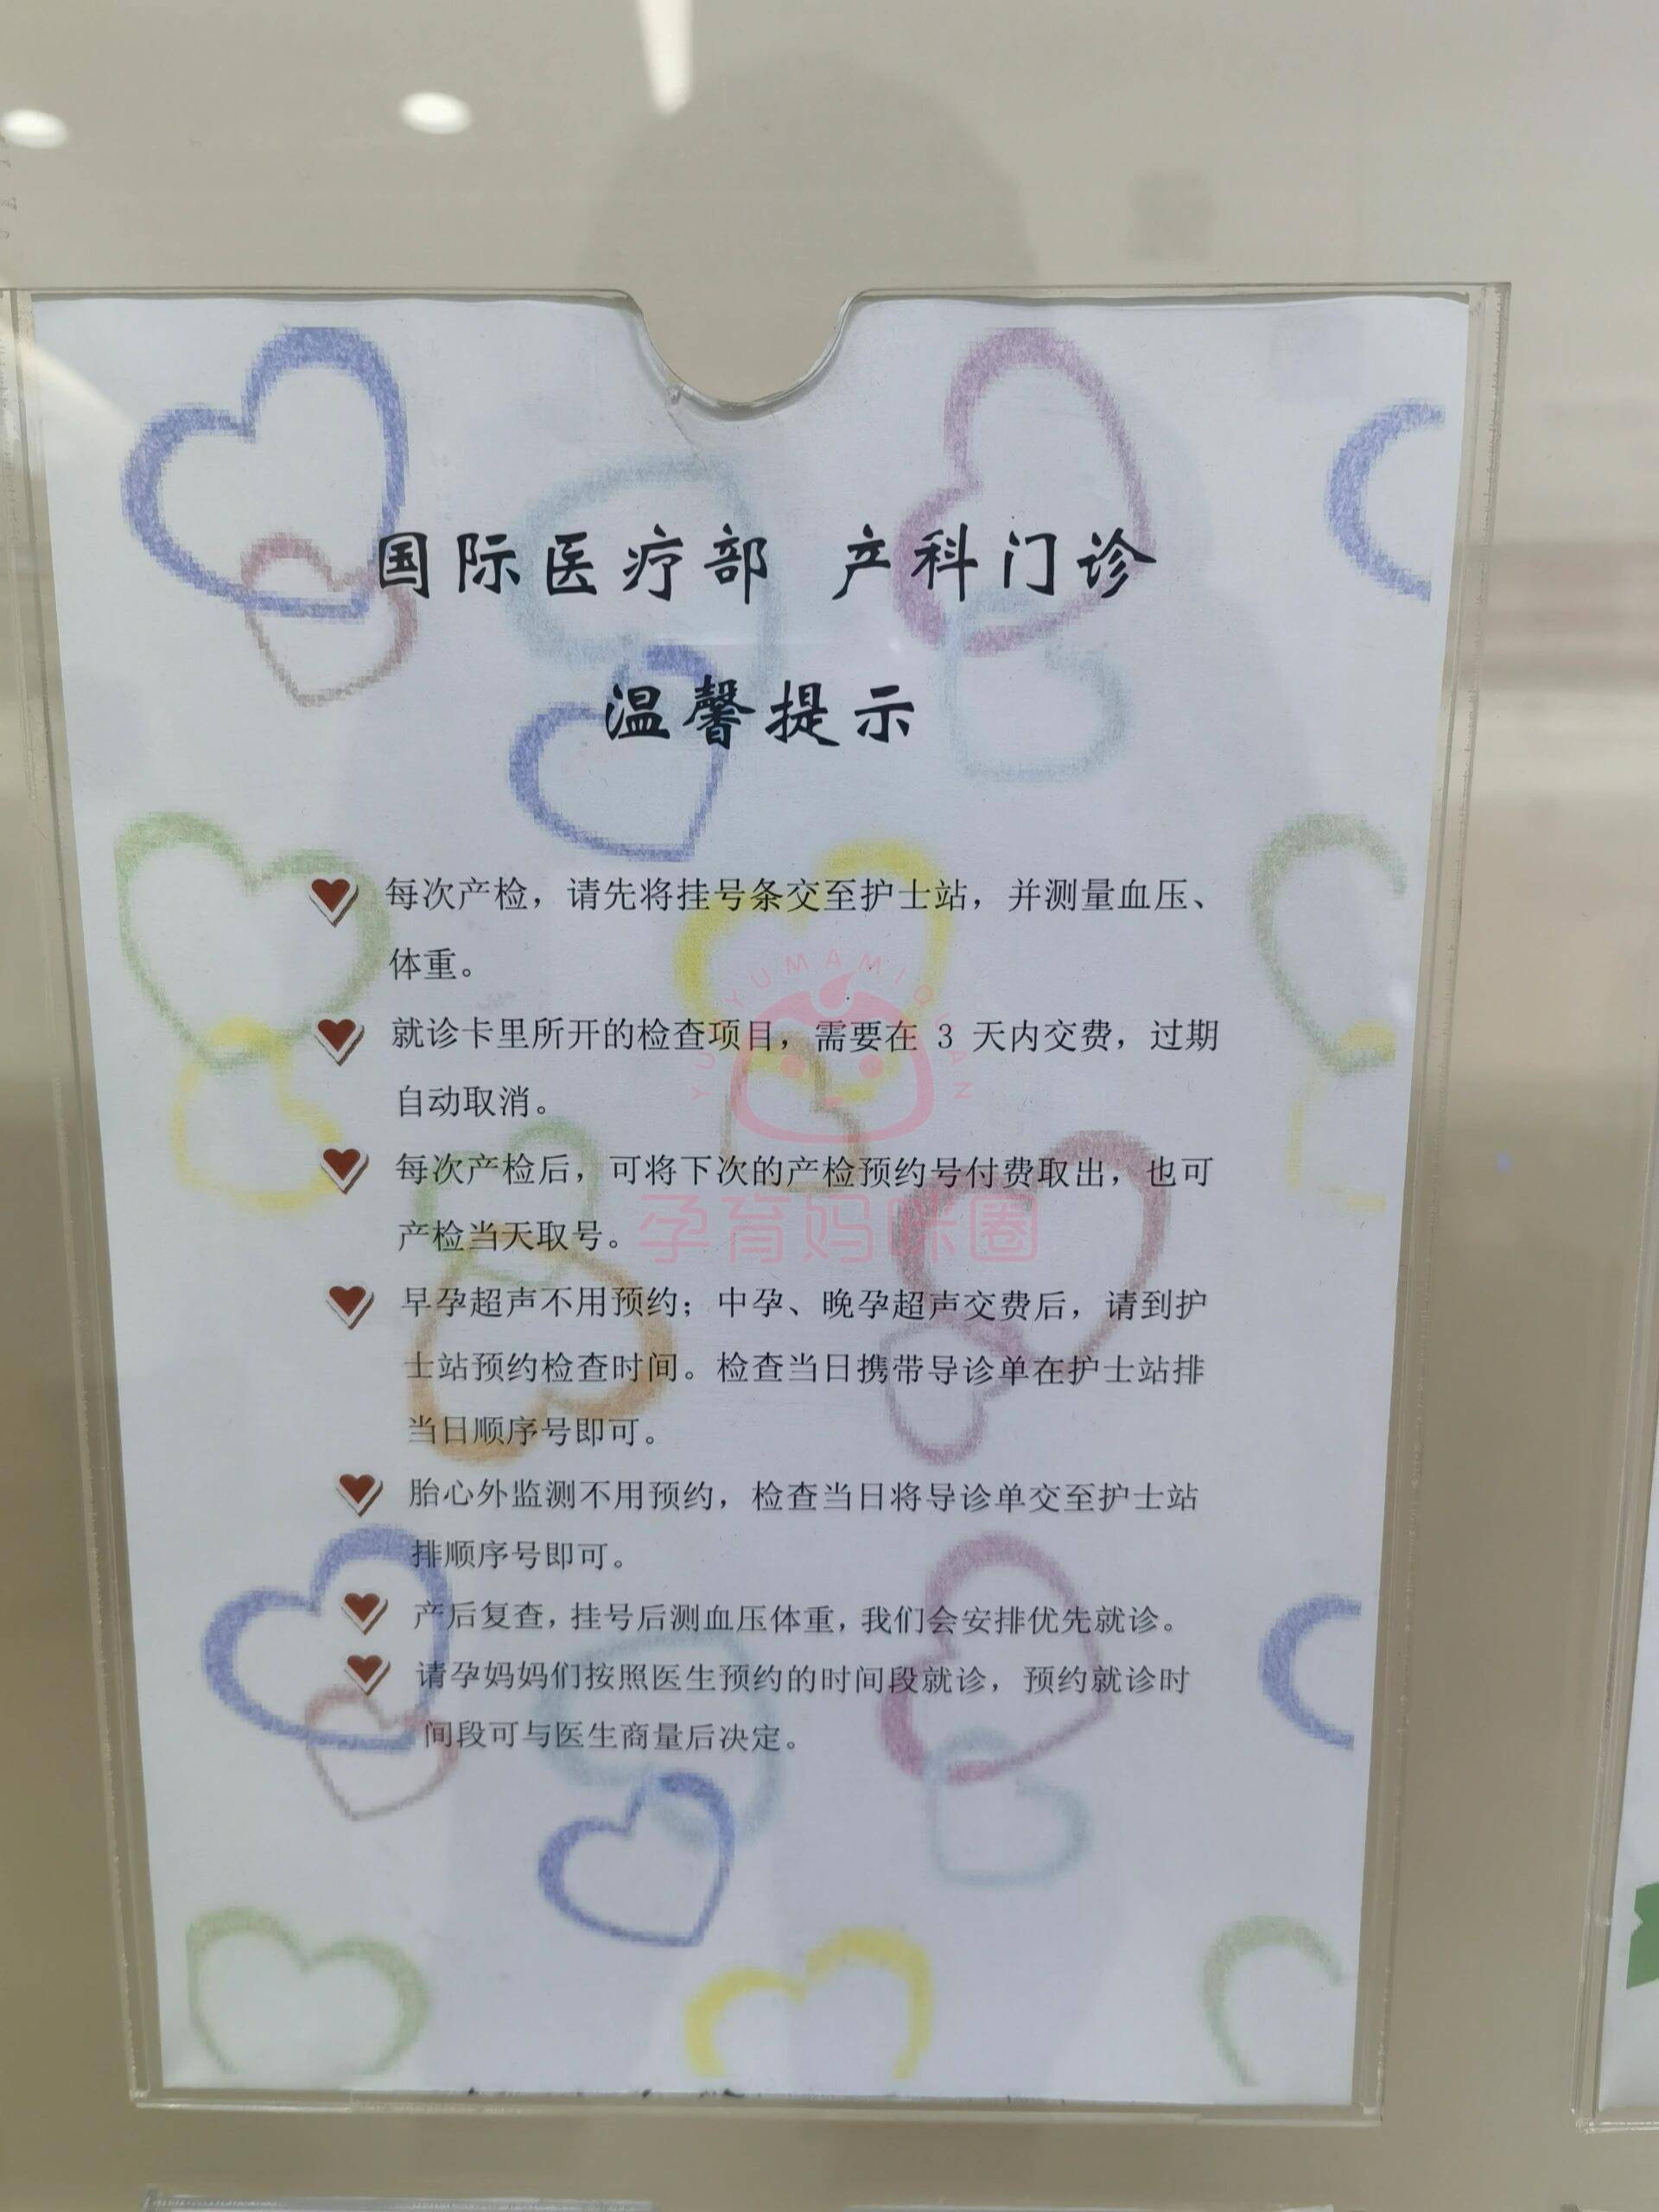 国际医疗部 产科门诊
温馨提示
每次产检，请先将挂号条交至护士站，并测量血压、
体重。
就诊卡里所开的检查项目，需要在 3 天内交费，过期
自动取消。
每次产检后，可将下次的产检预约号付费取出，也可
产检当天取号。
早孕超声不用预约；中孕、晚孕超声交费后，请到护
士站预约检查时间。检查当日携带导诊单在护士站排
当日顺序号即可。
胎心外监测不用预约，检查当日将导诊单交至护士站
排顺序号即可。
产后复查，挂号后测血压体重，我们会安排优先就诊。
请孕妈妈们按照医生预约的时间段就诊，预约就诊时
间段可与医生商量后决定。
YUNYUMAMIQUAN
孕育妈咪圈